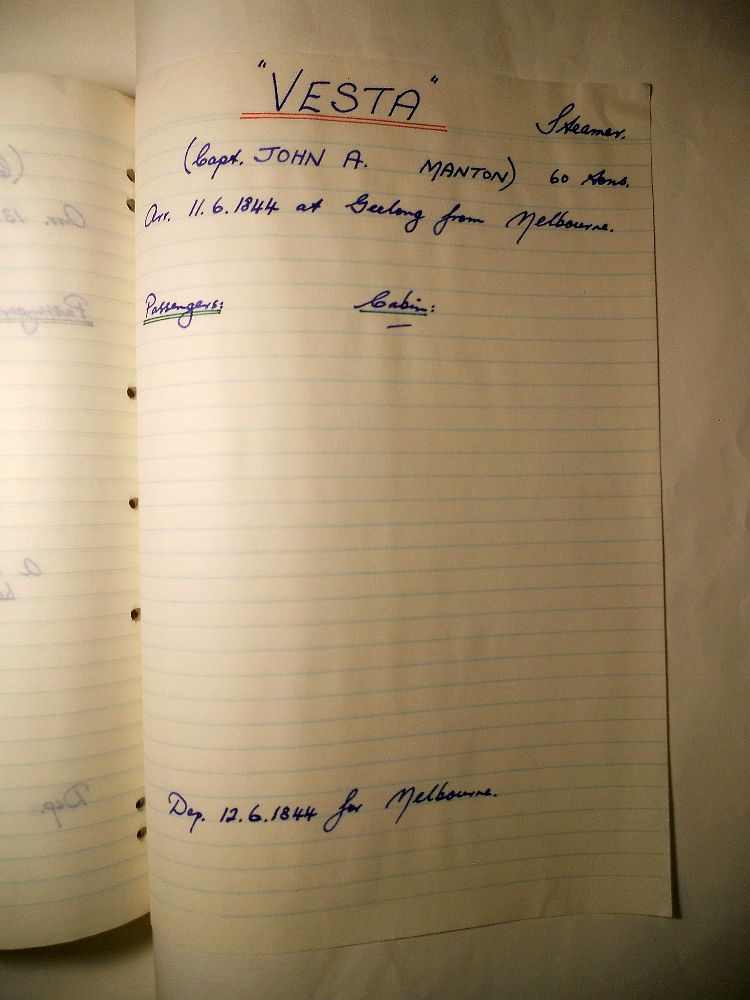 "VESTA"
Steamer.
(Capt. JOHN A. MANTON) 60 tons.
Arr. 11.6.1844 at Geelong from Melbourne.
Passengers: Cabin:
—
Dep. 12.6.1844 for Melbourne.
(
Arr. 13.
Passenger
a
Dep.